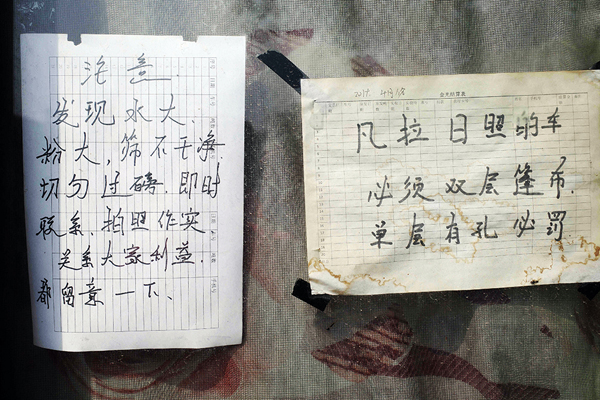 注意
发现水大、
粉大，筛不干净
切勿过磅.即时
联系、拍照作实
关系大家利益.
都留意一下、
凡拉日照的车，
必须双层篷布.
单层有孔必罚